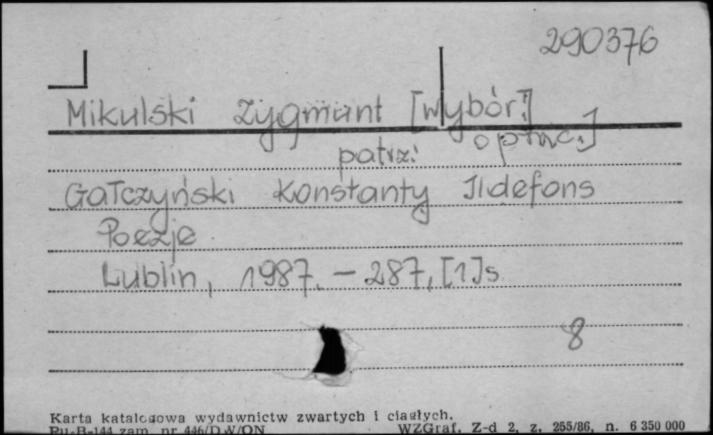 290376
Mikulski Zygmunt [wybór i
oprac.]
patrz:
Gałczyński Konstanty Ildefons
Poezje
Lublin, 1987. – 287, [1] s
8
Karta katalogowa wydawnictw zwartych i ciągłych.
Pu-B-144 zam. nr 446/D W/ON WZGraf. Z-d 2, z. 255/86, n. 6 350 000